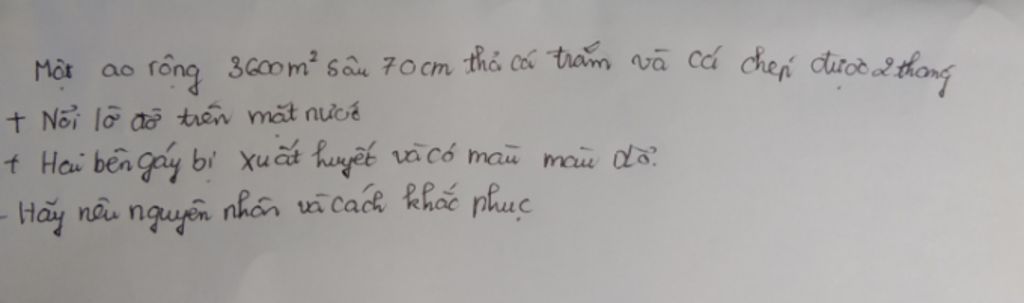 Một ao rộng 3600m² sâu 70cm thả cá trắm và cá chép được 2 thang
+ Nổi lờ đờ trên mặt nước
+ Hai bên gáy bị xuất huyết và có màu màu đỏ.
- Hãy nêu nguyên nhân và cách khắc phục